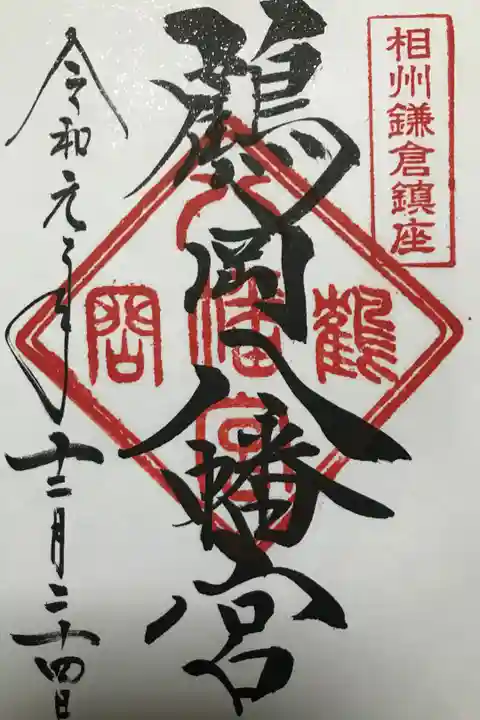 相州鎌倉鎮座
鶴岡八幡宮
鶴岡
八幡宮
令和元年十二月二十四日